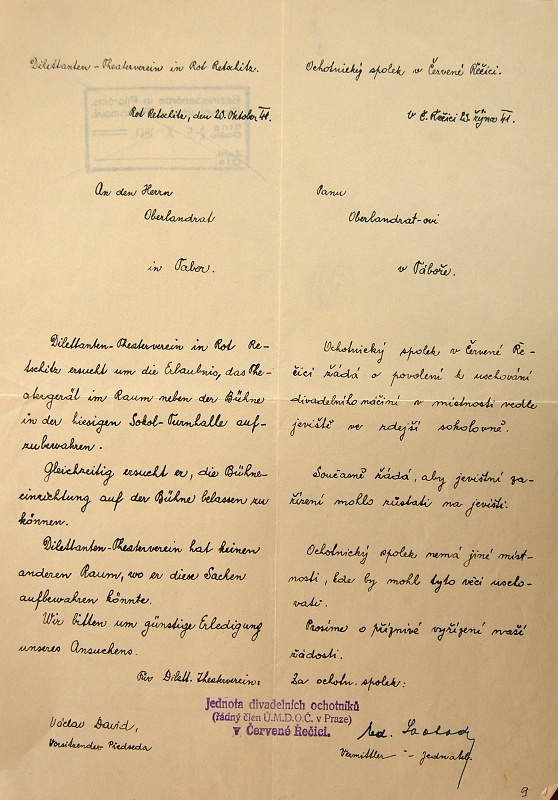 Dilettanten-Theaterverein in Rot Retschitz.
Rot Retschitz, den 20. Oktober 41.
An den Herrn
Oberlandrat
in Tabor.
Dilettanten-Theaterverein in Rot Re-
tschitz ersucht um die Erlaubnis, das The-
atergerät im Raum neben der Bühne
in der hiesigen Sokol-Turnhalle auf-
zubewahren.
Gleichzeitig ersucht er, die Bühne-
einrichtung auf der Bühne belassen zu
können.
Dilettanten-Theaterverein hat keinen
anderen Raum, wo er diese Sachen
aufbewahren könnte.
Wir bitten um günstige Erledigung
unseres Ansuchens.
Für Dilett. Theaterverein:
Václav David,
Vorsitzender Předseda
Ochotnický spolek v Červené Řečici.
V Č. Řečici 23. října 41.
Panu
Oberlandrat-ovi
v Táboře.
Ochotnický spolek v Červené Ře-
čici žádá o povolení k uschování
divadelního náčiní v místnosti vedle
jeviště ve zdejší sokolovně.
Současně žádá, aby jevištní za-
řízení mohlo zůstati na jevišti.
Ochotnický spolek nemá jiné míst-
nosti, kde by mohl tyto věci uscho-
vati.
Prosíme o příznivé vyřízení naší
žádosti.
Za ochotn. spolek:
Jednota divadelních ochotníků
(řádný člen Ú.M.D.O.Č. v Praze)
v Červené Řečici.
Vermittler - jednatel.
9